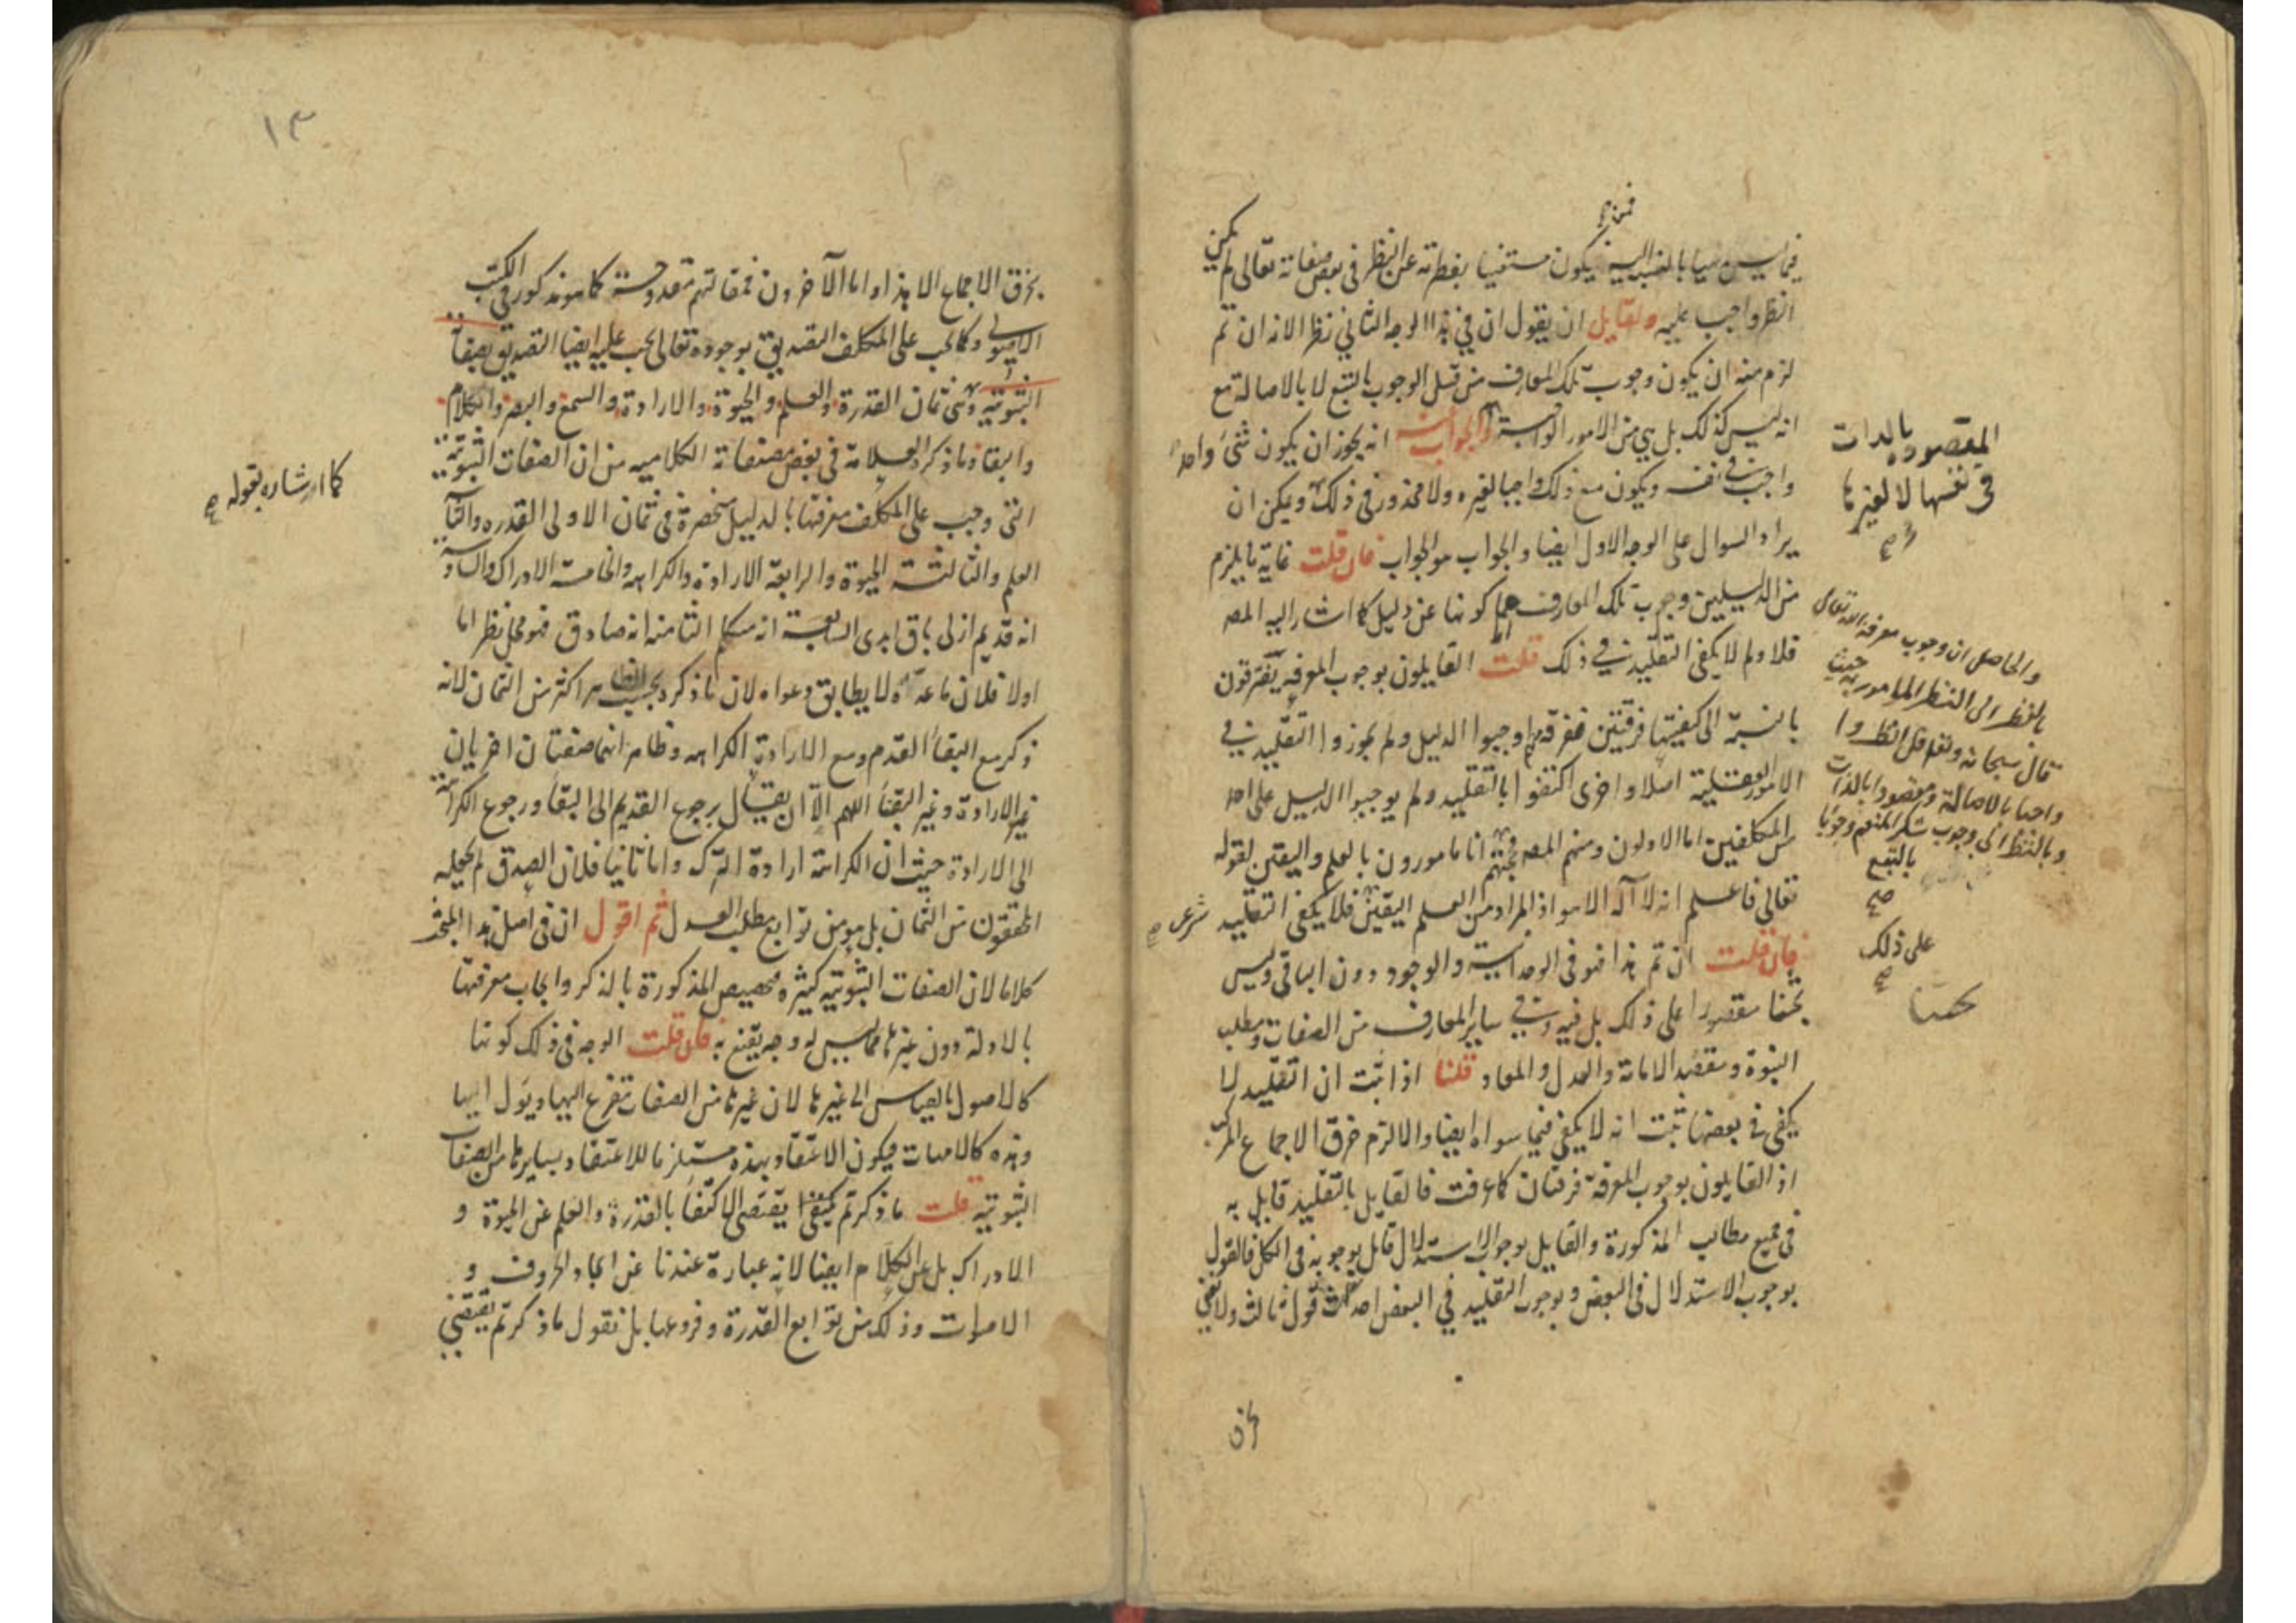 فيما ليس بالنسبة اليه يكون مستغنيا بفطرته عن النظر في بعض صفاته تعالى لم يكن
النظر واجبا عليه ولقايل ان يقول ان في هذا الوجه الثاني نظر الانه ان تم
لزم منه ان يكون وجوب تلك المعارف من قبل الوجوب بالتبع لا بالاصالة مع
انه ليس كذلك بل هي من الامور الواجبة والجواب انه يجوز ان يكون شئ واحد
واجب في نفسه ويكون مع ذلك واجبا لغيره ولا محذور في ذلك ويمكن ان
يراد السوال على الوجه الاول ايضا والجواب هو الجواب فان قلت غاية ما يلزم
من الدليلين وجوب تلك المعارف كونها عن دليل كما اشار اليه المصه
فلا ولم لا يكفي التقليد في ذلك قلت القايلون بوجوب المعرفة يفترقون
بالنسبة الى كيفيتها فرقتين ففرقة اوجبوا الدليل ولم يجوزوا التقليد في
الامور العقلية اصلا واخرى اكتفوا بالتقليد ولم يوجبوا الدليل على احد
من المكلفين اما الاولون ومنهم المصه فحجتهم انا مامورون بالعلم واليقين لقوله
تعالى فاعلم انه لا آله الا هو اذ المراد من العلم اليقين فلا يكفي التقليد
فان قلت ان تم هذا فهو في الوحدانية والوجود دون الباقي وليس
بحثنا مقصورا على ذلك بل فيه وفي ساير المعارف من الصفات ومطلب
النبوة ومقصد الامامة والعدل والمعاد قلنا اذا ثبت ان التقليد لا
يكفي في بعضها ثبت انه لا يكفي فيما سواه ايضا والا لزم خرق الاجماع المركب
اذ القايلون بوجوب المعرفة فرقتان كما عرفت فالقايل بالتقليد قايل به
في جميع مطالب المذكورة والقايل بوجوب الاستدلال قايل بوجوبه في الكل فالقول
بوجوب الاستدلال في البعض وبوجوب التقليد في البعض احداث قول ثالث ولا نعني
المقصوده بالذات
في نفسها لا لغيرها
صح
والحاصل ان وجوب معرفة الله تعالى
بالنظر الى النظر المامور به حيث
قال سبحانه وتعالى قل انظروا
واجبا بالاصالة ومقصودا بالذات
وبالنظر الى وجوب شكر المنعم وجوبا
بالتبع
صح
على ذلك
صح
شرعى صح
١٣
بخرق الاجماع الا هذا واما الآخرون فمقالتهم مقدوحة كما هو مذكور في الكتب
الاصولى وكما يجب على المكلف التصديق بوجوده تعالى يجب عليه ايضا التصديق بصفاته
الثبوتيه وهى ثمان القدرة والعلم والحيوة والارادة والسمع والبصر والكلام
والبقا وما ذكره العلامة في بعض مصنفاته الكلاميه من ان الصفات الثبوتية
التى وجب على المكلف معرفتها بالدليل منحصرة في ثمان الاولى القدره والثانية
العلم والثالثة الحيوة والرابعة الارادة والكراهه والخامسة الادراك والسادسة
انه قديم ازلى باق ابدى السابعة انه متكلم الثامنه انه صادق فهو محل نظر اما
اولا فلان ما عده لا يطابق دعواه لان ما ذكره بحسب اكثر من الثمان لانه
ذكر مع البقأ القدم ومع الارادة الكراهه وظاهر انهما صفتان اخريان
غير الارادة وغير البقأ اللهم الا ان يقال يرجع القديم الى البقأ ورجوع الكراهة
الى الارادة حيث ان الكراهة ارادة الترك واما ثانيا فلان الصدق لم يجعله
المحققون من الثمان بل هو من توابع مطلب العدل ثم اقول ان في اصل هذا المبحث
كلاما لان الصفات الثبوتيه كثيره فتخصيص المذكورة بالذكر وايجاب معرفتها
بالادلة دون غيرها مما ليس له وجه يقنع به فان قلت الوجه في ذلك كونها
كالاصول بالقياس الى غيرها لان غيرها من الصفات يتفرع اليها ويؤل اليها
وهذه كالامهات فيكون الاعتقاد بهذه مستلزما للاعتقاد بسايرها من الصفات
الثبوتيه قلت ما ذكرتم يقتضى الاكتفأ بالقدرة والعلم عن الحيوة و
الادراك بل عن الكلام ايضا لانه عبارة عندنا عن ايجاد الحروف و
الاصوات وذلك من توابع القدرة وفروعها بل نقول ما ذكرتم يقتضى
كما اشار بقوله صح